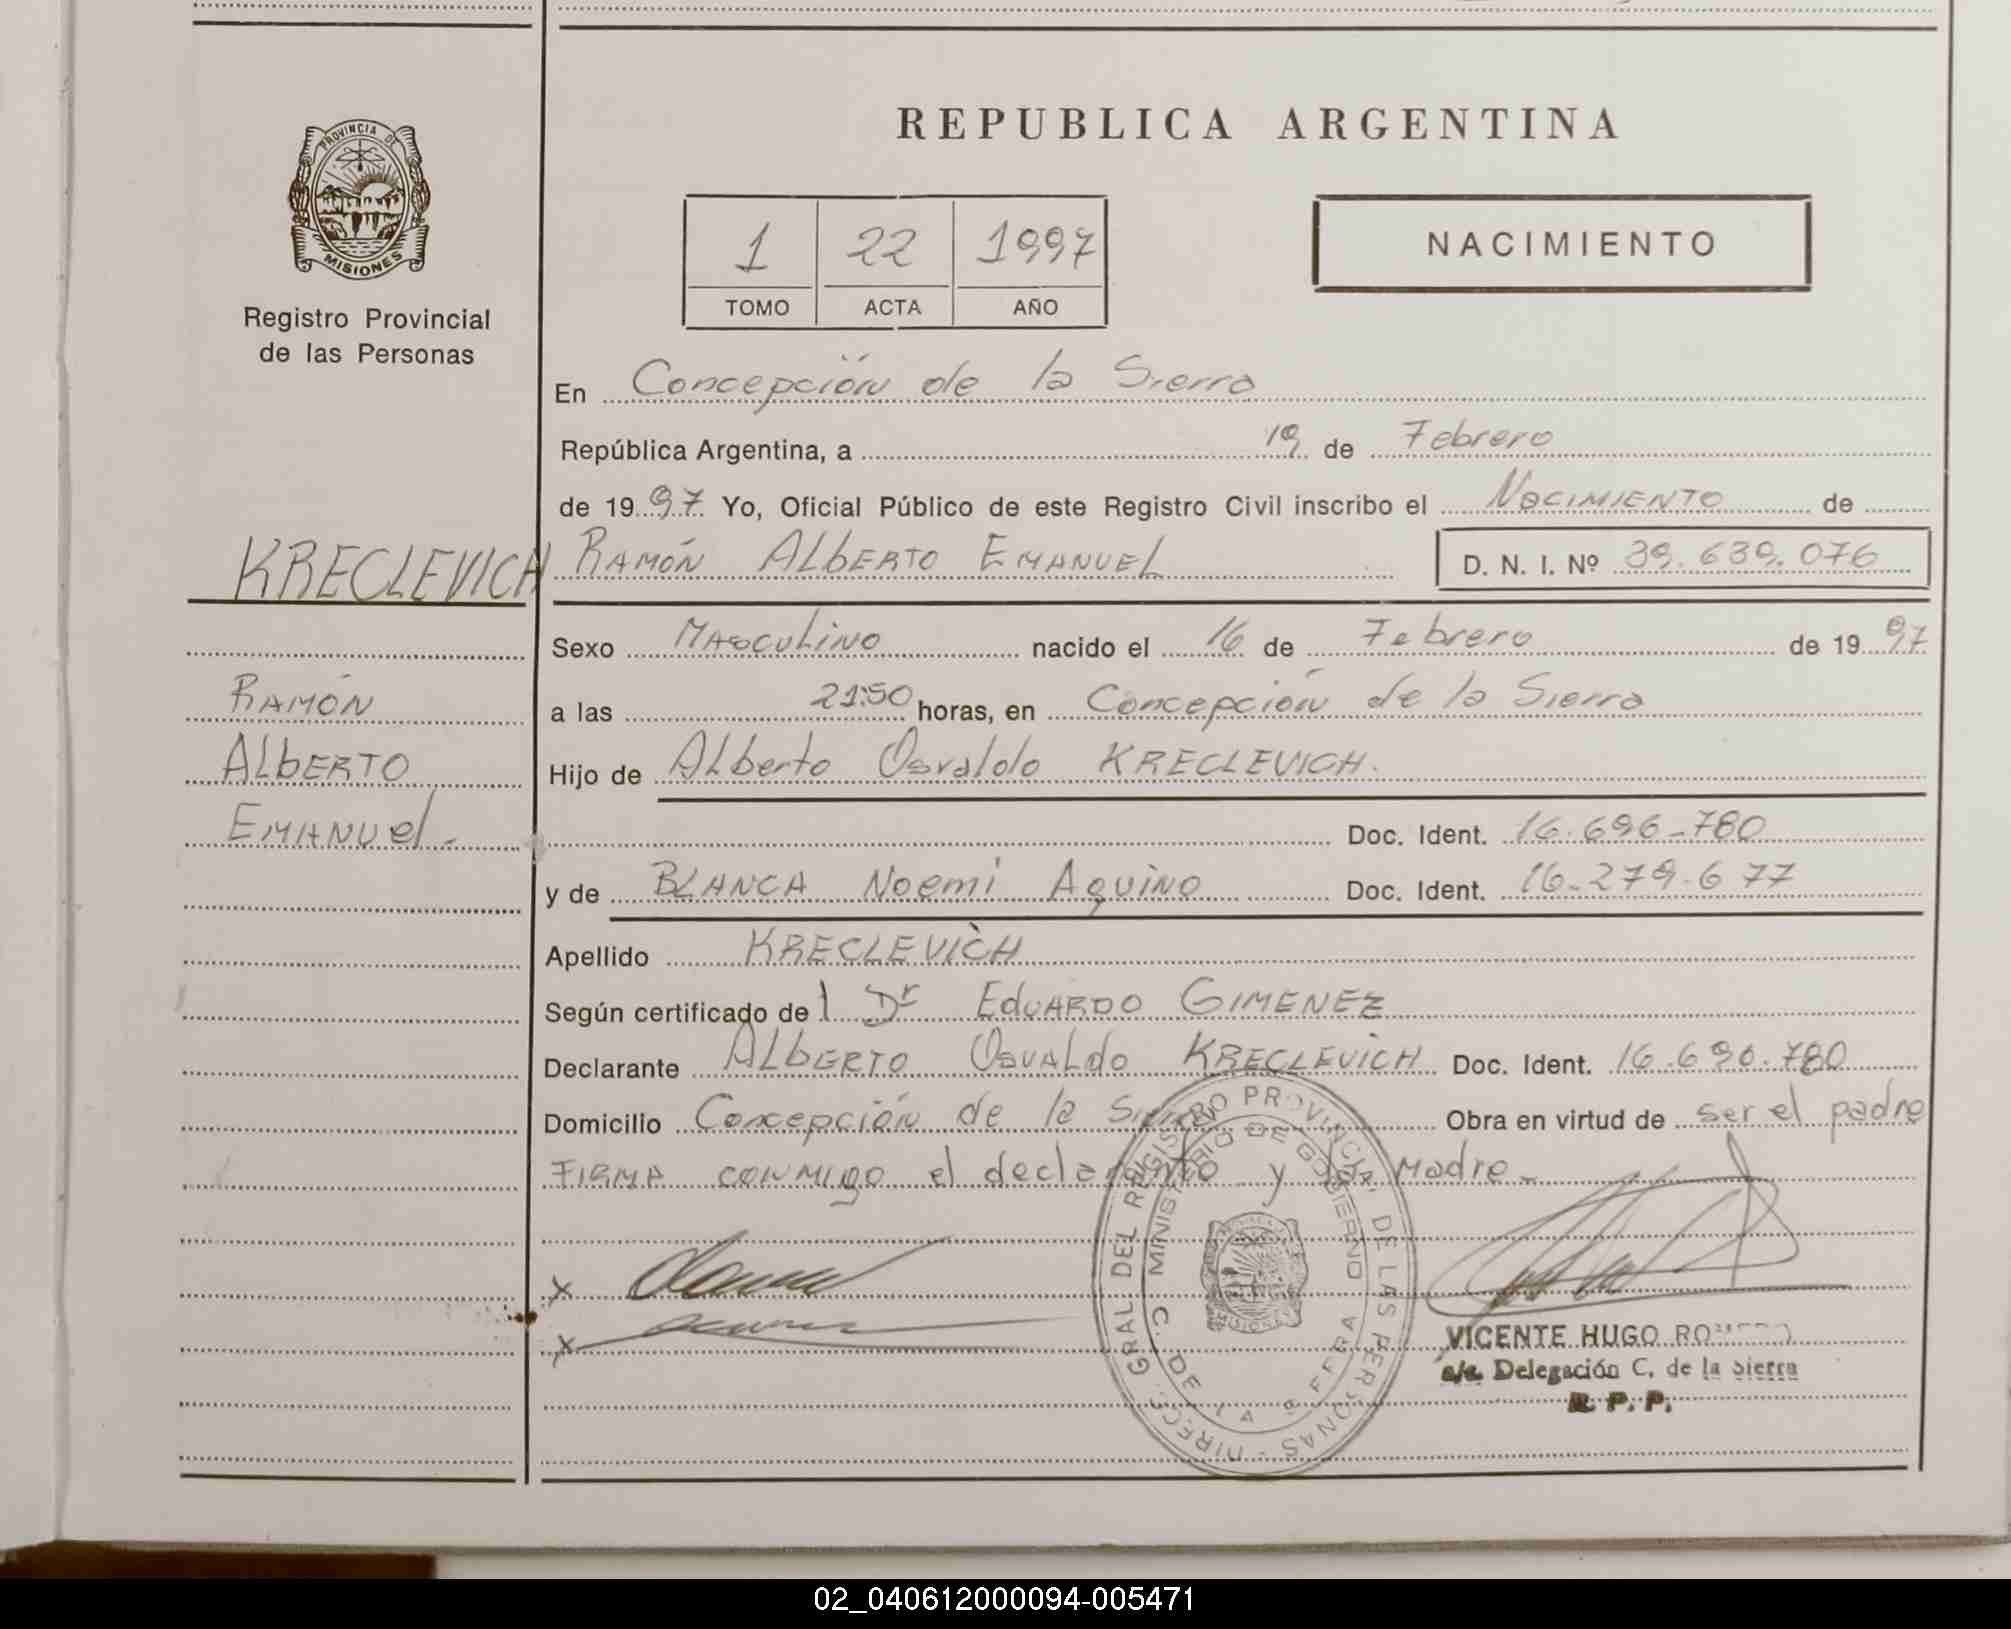 PROVINCIA DE
MISIONES
Registro Provincial
de las Personas
REPUBLICA ARGENTINA
1 22 1997
TOMO ACTA AÑO
NACIMIENTO
En Concepción de la Sierra
República Argentina, a 19 de Febrero
de 1997 Yo, Oficial Público de este Registro Civil inscribo el Nacimiento de
KRECLEVICH
RAMÓN ALBERTO EMANUEL
D. N. I. Nº 39.639.076
Sexo Masculino nacido el 16 de Febrero de 1997
RAMÓN
ALBERTO
EMANUEL.-
a las 21:50 horas, en Concepción de la Sierra
Hijo de Alberto Osvaldo KRECLEVICH.
Doc. Ident. 16.696-780
y de BLANCA Noemi Aquino Doc. Ident. 16-279-677
Apellido KRECLEVICH
Según certificado del Dr EDUARDO GIMENEZ
Declarante ALBERTO OSVALDO KRECLEVICH Doc. Ident. 16.696.780
Domicilio Concepción de la Sierra Obra en virtud de ser el padre
FIRMA CONMIGO el declarante y la Madre.-
X
X
DIREC. GRAL DEL REGISTRO PROVINCIAL DE LAS PERSONAS -
MINISTERIO DE GOBIERNO
C. DE LA SIERRA
VICENTE HUGO
a/c. Delegación C. de la Sierra
R. P. P.
02_040612000094-005471